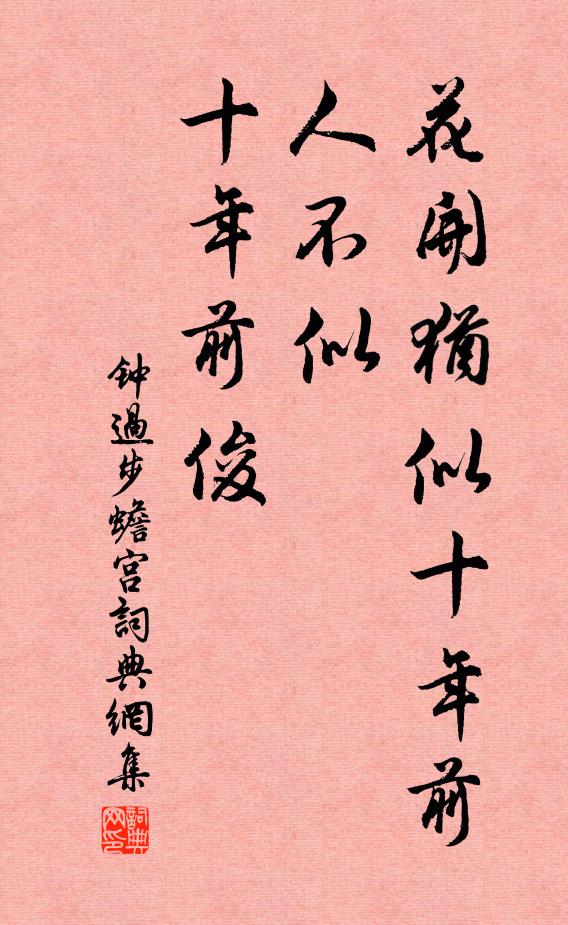 花開猶似十年前
人不似
十年前俊
鈡過步蟾宮詞典網集
詞典
网印